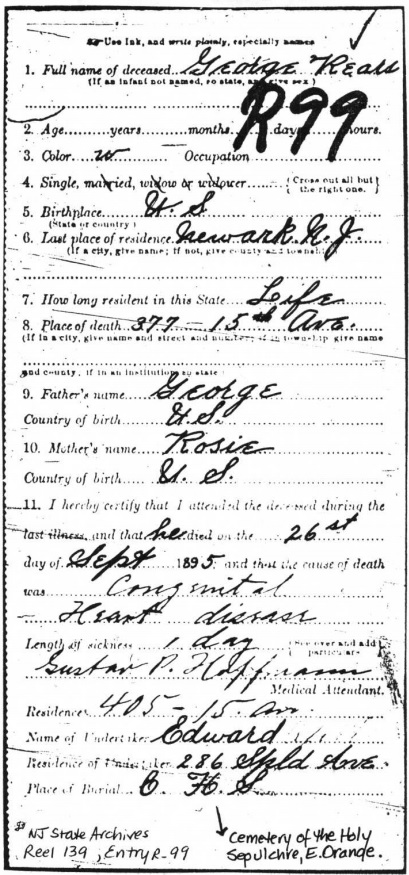 Use Ink, and write plainly, especially names
1. Full name of deceased George Kears
(If an infant not named, so state, and give sex)
R99
2. Age......years......months......days......hours.
3. Color w Occupation
4. Single, married, widow or widower (Cross out all but the right one.)
5. Birthplace U.S
(State or country)
6. Last place of residence Newark N.J.
(If a city, give name; if not, give county and township)
7. How long resident in this State Life
8. Place of death 377 - 15th Ave.
(If in a city, give name and street and number; if in township give name
and county; if in an institution so state)
9. Father's name George
Country of birth U.S.
10. Mother's name Rosie
Country of birth U.S.
11. I hereby certify that I attended the deceased during the
last illness, and that he died on the 26st
day of Sept 1895 and that the cause of death
was Congenital
Heart disease
Length of sickness 1 day (See over and add particulars)
Gustav P. Hoffmann
Medical Attendant.
Residence 405-15. Av.
Name of Undertaker Edward
Residence of Undertaker 286 Spfld Ave.
Place of Burial C H S
NJ State Archives
Reel 139, Entry R-99
Cemetery of the Holy
Sepulchre, E. Orange.